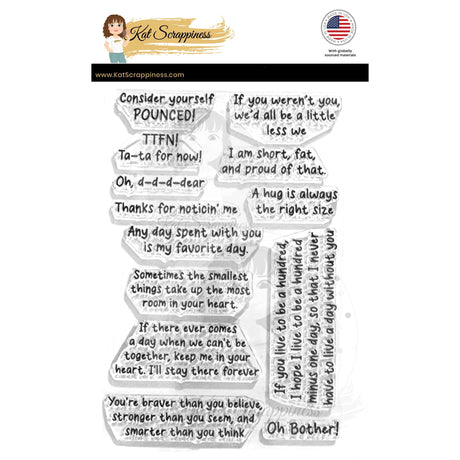 Kat Scrappiness
With globally
sourced materials
www.KatScrappiness.com
Consider yourself
POUNCED!
If you weren't you,
we'd all be a little
less we
TTFN!
Ta-ta for now!
I am short, fat,
and proud of that.
Oh, d-d-d-dear
A hug is always
the right size
Thanks for noticin' me
Any day spent with you
is my favorite day.
If you live to be a hundred,
I hope I live to be a hundred
minus one day, so that I never
have to live a day without you
Sometimes the smallest
things take up the most
room in your heart.
If there ever comes
a day when we can't be
together, keep me in your
heart. I'll stay there forever
You're braver than you believe,
stronger than you seem, and
smarter than you think
Oh Bother!